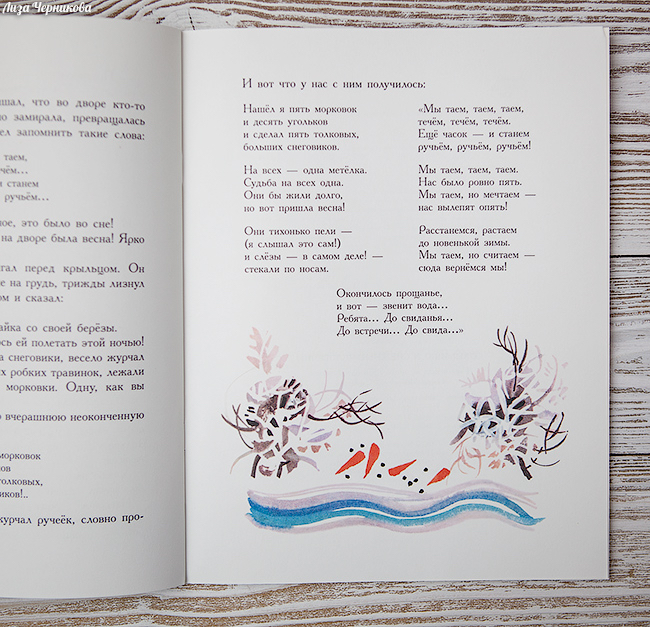 Лиза Черникова
шал, что во дворе кто-то
замирала, превращалась
запомнить такие слова:
таем,
чём...
и станем
ручьём...
это было во сне!
на дворе была весна! Ярко
перед крыльцом. Он
на грудь, трижды лизнул
и сказал:
со своей берёзы.
ей полетать этой ночью!
снеговики, весело журчал
робких травинок, лежали
морковки. Одну, как вы
вчерашнюю неоконченную
морковок
толковых,
журчал ручеёк, словно про-
И вот что у нас с ним получилось:
Нашёл я пять морковок
и десять угольков
и сделал пять толковых,
больших снеговиков.
На всех — одна метёлка.
Судьба на всех одна.
Они бы жили долго,
но вот пришла весна!
Они тихонько пели —
(я слышал это сам!)
и слёзы — в самом деле! —
стекали по носам.
«Мы таем, таем, таем,
течём, течём, течём.
Ещё часок — и станем
ручьём, ручьём, ручьём!
Мы таем, таем, таем.
Нас было ровно пять.
Мы таем, но мечтаем —
нас вылепят опять!
Расстанемся, растаем
до новенькой зимы.
Мы таем, но считаем —
сюда вернёмся мы!
Окончилось прощанье,
и вот — звенит вода...
Ребята... До свиданья...
До встречи... До свида...»